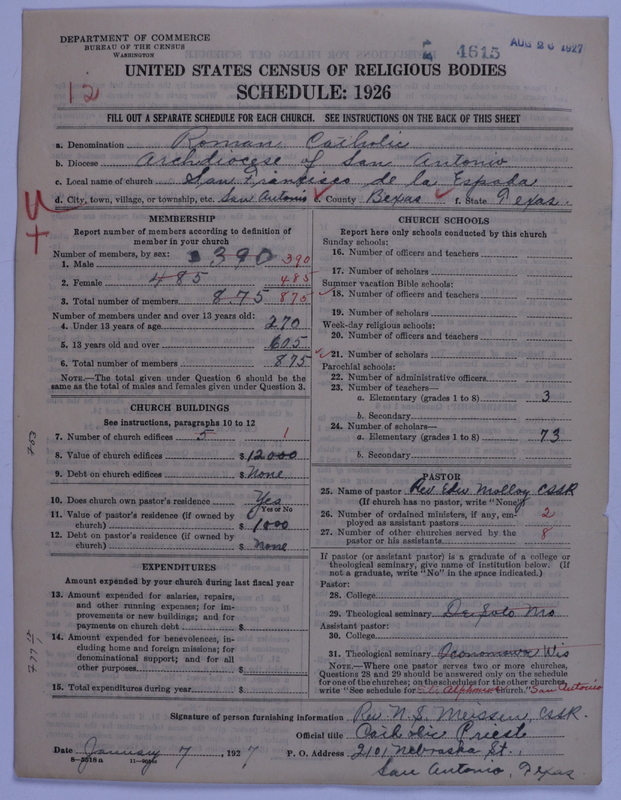 DEPARTMENT OF COMMERCE
BUREAU OF THE CENSUS
WASHINGTON
4615
AUG 26 1927
12
UNITED STATES CENSUS OF RELIGIOUS BODIES
SCHEDULE: 1926
FILL OUT A SEPARATE SCHEDULE FOR EACH CHURCH. SEE INSTRUCTIONS ON THE BACK OF THIS SHEET
a. Denomination Roman Catholic
b. Diocese Archdiocese of San Antonio
c. Local name of church San Francisco de la Espada
d. City, town, village, or township, etc. San Antonio e. County Bexas f. State Texas.
MEMBERSHIP
Report number of members according to definition of
member in your church
Number of members, by sex:
1. Male 390 390
2. Female 485 485
3. Total number of members 875 875
Number of members under and over 13 years old:
4. Under 13 years of age 270
5. 13 years old and over 605
6. Total number of members 875
NOTE.—The total given under Question 6 should be
same as the total of males and females given under Question 3.
CHURCH BUILDINGS
See instructions, paragraphs 10 to 12
7. Number of church edifices 5 1
8. Value of church edifices $12000
9. Debt on church edifices $None
10. Does church own pastor's residence Yes
Yes or No
11. Value of pastor's residence (if owned by
church) $1000
12. Debt on pastor's residence (if owned by
church) $None
EXPENDITURES
Amount expended by your church during last fiscal year
13. Amount expended for salaries, repairs,
and other running expenses; for im-
provements or new buildings; and for
payments on church debt $
14. Amount expended for benevolences, in-
cluding home and foreign missions; for
denominational support; and for all
other purposes $
15. Total expenditures during year $
CHURCH SCHOOLS
Report here only schools conducted by this church
Sunday schools:
16. Number of officers and teachers
17. Number of scholars
Summer vacation Bible schools:
18. Number of officers and teachers
19. Number of scholars
Week-day religious schools:
20. Number of officers and teachers
21. Number of scholars
Parochial schools:
22. Number of administrative officers
23. Number of teachers—
a. Elementary (grades 1 to 8) 3
b. Secondary
24. Number of scholars—
a. Elementary (grades 1 to 8) 73
b. Secondary
PASTOR
25. Name of pastor Rev. Edw Molloy CSSR
(If church has no pastor, write "None")
26. Number of ordained ministers, if any, em-
ployed as assistant pastors 2
27. Number of other churches served by the
pastor or his assistants 8
If pastor (or assistant pastor) is a graduate of a college or
theological seminary, give name of institution below. (If
not a graduate, write "No" in the space indicated.)
Pastor:
28. College
29. Theological seminary De Soto Mo
Assistant pastor:
30. College
31. Theological seminary Oconomowoc Wis
NOTE.—Where one pastor serves two or more churches,
Questions 28 and 29 should be answered only on the schedule
for one of the churches; on the schedules for the other churches,
write "See schedule for St. Alphonsus Church." San Antonio
Signature of person furnishing information Rev. N. S. Meissen, CSSR.
Official title Catholic Priest
Date January 7, 1927 P. O. Address 2101 Nebraska St.,
San Antonio, Texas